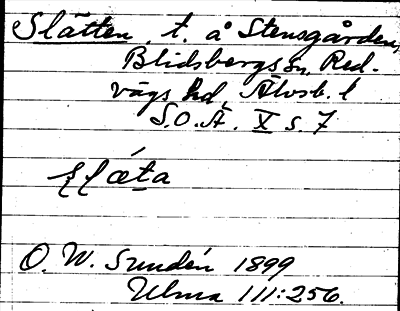 Slätten, t. å Stensgården,
Blidsbergs sn, Red-
vägs hd, Älvsb. l
S.O.Ä. X s. 7
O. W. Sundén 1899
Ulma 111:256.